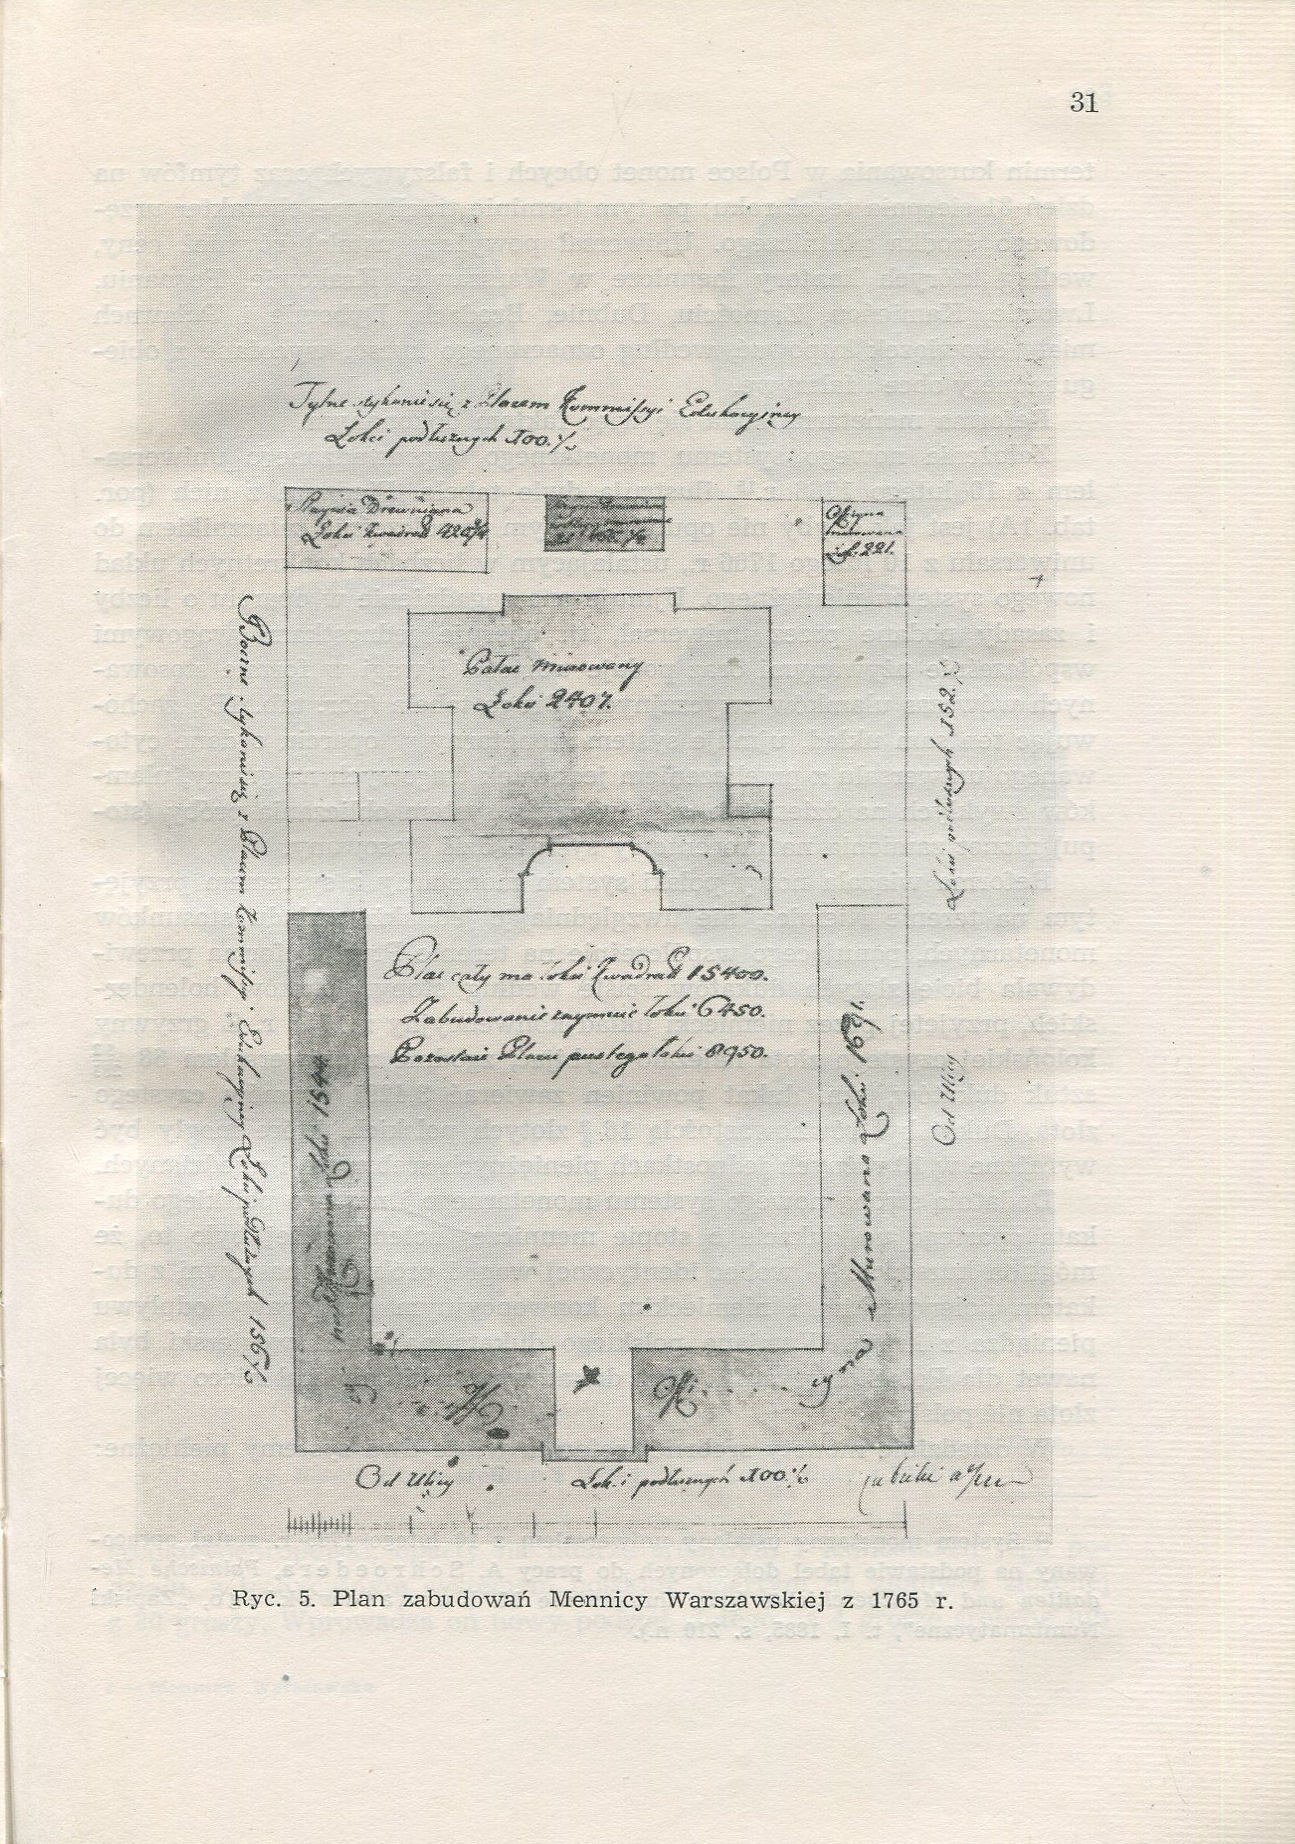 31
Tylne stykanie się z Placem Kommissyi Edukacyiney
Łokci podłużnych 100.½
Drewniana
Łokci kwadrat 420¾
Oficyna
murowana
Łok. 221.
Pałac murowany
Łokci 2407.
Boczne stykanie się z Placem Kommissyi Edukacyiney Łokci podłużnych 156½
Łokci podłużnych 152.½
Od Ulicy
Plac cały ma łokci kwadrat 15400.
Zabudowanie zaymuie łokci 6450.
Pozostaie Placu pustego łokci 8950.
Łokci 1544
Oficyna Murowana Łokci 1691.
Od Ulicy
Łokci podłużnych 100.½
Ryc. 5. Plan zabudowań Mennicy Warszawskiej z 1765 r.